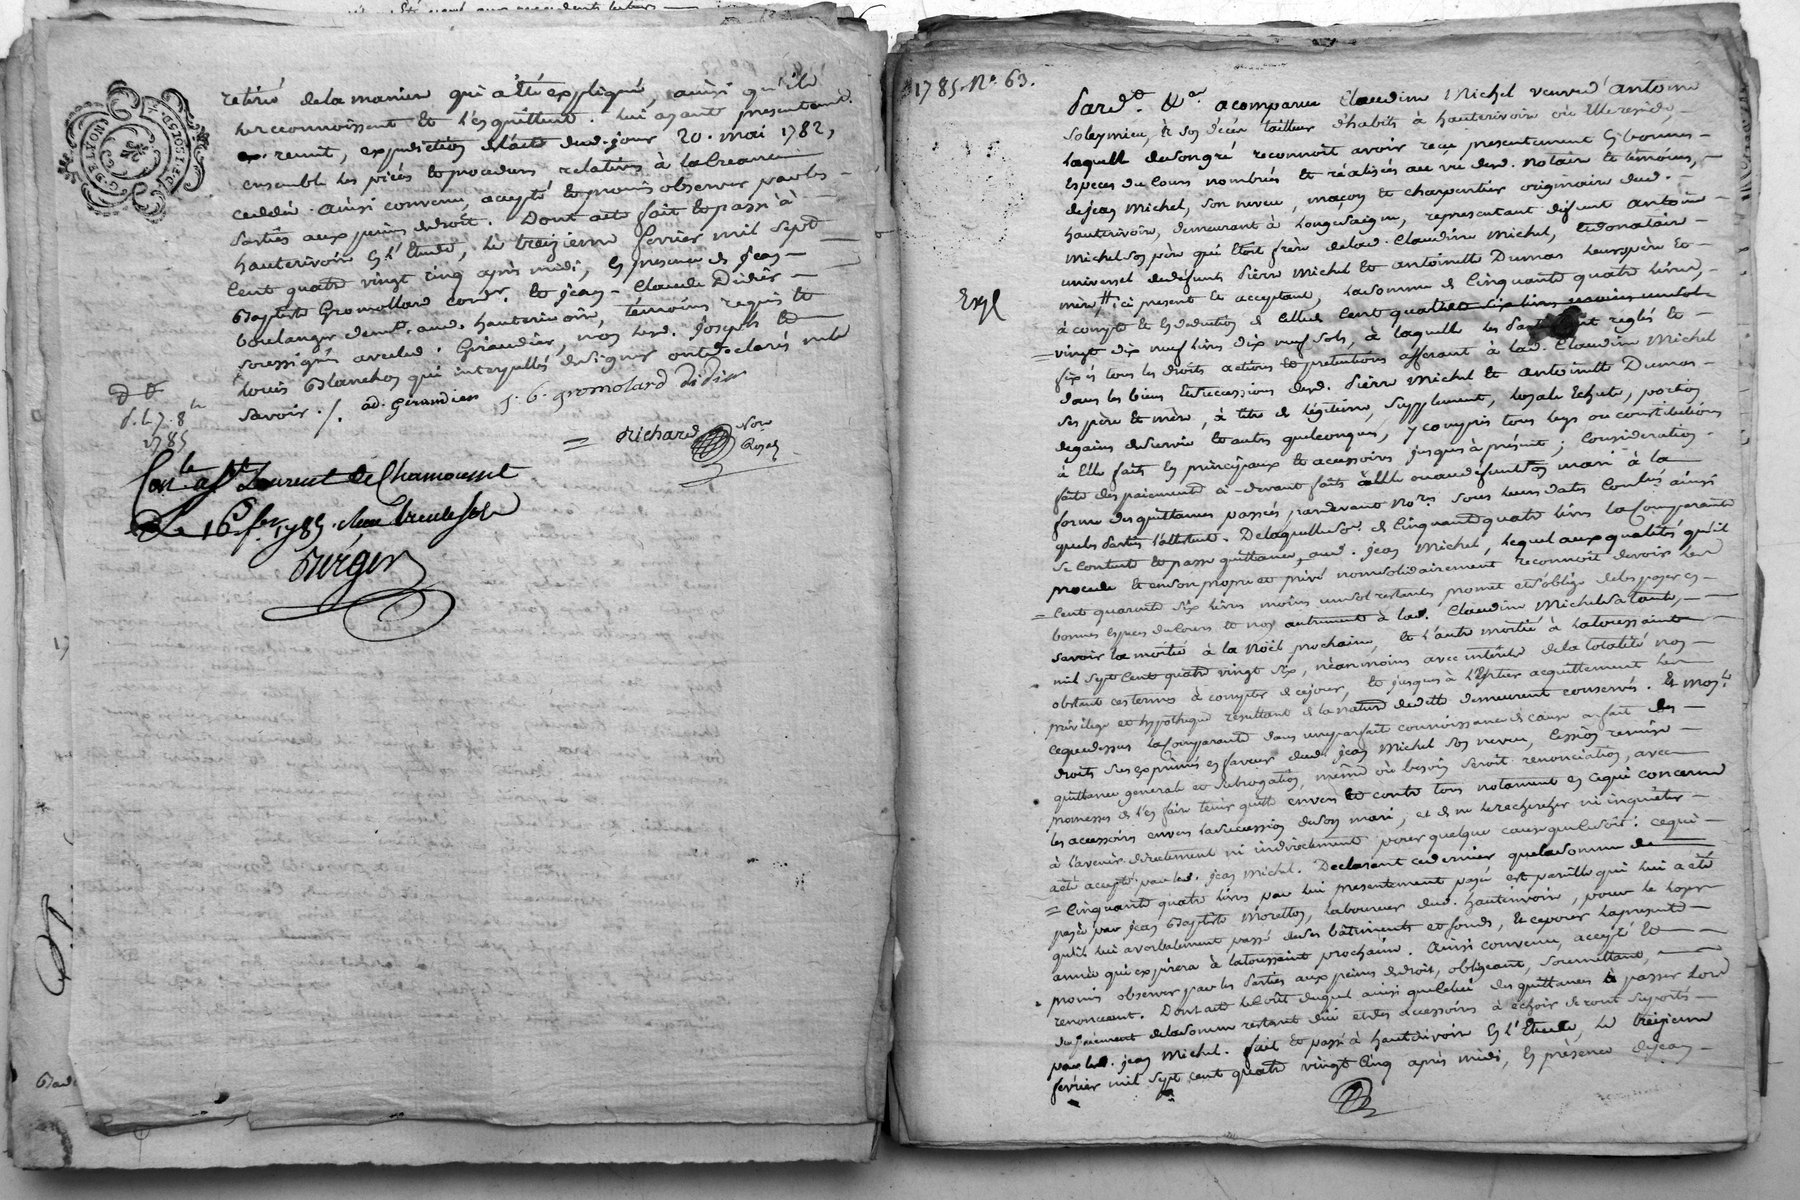 retiré de la maniere qui a été expliqué, ainsi qu'ils
le reconnoissent et l'en quittent. lui ayant présentemt.
remit, expedition de l'acte dud. jour 20. mai 1782,
ensemble les pièces et procedures relatives à la creance
ceddée. ainsi convenu, accepté et promis observer par les
Parties aux peines de droit. Dont acte fait et passé à
hauterivoire en l'Etude, le treizieme fevrier mil sept
cent quatre vingt cinq après midi, en presence de jean
Baptiste Gromollard cordr. et jean-Claude Didier
boulanger demt. aud. hauterivoire, témoins requis et
soussignés avec led. Giraudier, non led. joseph et
Louis Blanchon qui interpellés de signer ont déclarés ne le
savoir ./. ad. Giraudier j. b. gromolard Didier
Richard Nore Royal
1785
Con.le a St Laurent de Chamousset
Le 16 fer. 1785. Reçu trente sols
Burger
G. DE LYON
1785 No. 63.
Pardt. &a. a comparu Claudine Michel veuve d'Antoine
Soleymieu, à son décès tailleur d'habits à hauterivoire où Elle reside,
laquelle de son gré reconnoit avoir reçu presentement en bonnes
Especes du cours nombrées et réalisés au vu dud. Notaire et témoins,
de jean Michel, son neveu, maçon et charpentier originaire dud.
hauterivoire, demeurant à Longesaigne, representant défunt antoine
Michel son père qui Etoit frère de lad. Claudine Michel, et donataire
universel de défunts Pierre Michel et antoinette Dumas leurs père et
mère, ici present et acceptant, la somme de Cinquante quatre livres,
Expé
à compte et en deduction de celle de Cent quatre
vingt dix neuf livres dix neuf sols, à laquelle les Parties ont reglés et
fixés tous les droits actions et pretentions afferant à lad. Claudine Michel
dans les biens et successions desd. Pierre Michel et antoinette Dumas
ses père et mère, à titre de légitime, supplement, loyale Echute, portion
de gains de survie et autres quelconques, y compris tous legs ou constitutions
à Elle faits en principaux et accessoires jusques à présent; Consideration
faite des paiements ci-devant faits à Elle ou au défunt son mari à la
forme des quittances passées pardevant Nores sous leurs dates Comme ainsi
que les Parties l'attestent. De laquelle Se. de Cinquante quatre livres la Comparante
se contente et passe quittance, aud. jean Michel, lequel aux qualités qu'il
procede et en son propre et privé nom solidairement reconnoit devoir les
Cent quarante six livres moins un sol restantes promet et s'oblige de les payer en
bonnes especes du Cours et non autrement à lad. Claudine Michel sa tante,
savoir la moitié à la Noël prochaine, et l'autre moitié à la toussaint
mil sept cent quatre vingt six, néanmoins avec intérêts de la totalité non
obstant ces termes à compter de ce jour, et jusques à l'Entier acquittement les
privilege et hypotheque résultant de la nature de dette demeurent conservés. Et moyt.
ce que dessus la Comparante dans une parfaite connoissance de cause a fait des
droits sus exprimés en faveur dud. jean Michel son neveu, Cession remise
quittance generale et subrogation, même où besoin seroit renonciation, avec
promesses de l'en faire tenir quitte envers et contre tous notament en ce qui concerne
les accessoires envers la succession de son mari, et de ne le rechercher ni inquiéter
à l'avenir directement ni indirectement pour quelque cause que ce soit: ce qui
a été accepté par led. jean Michel. Declarant ce dernier que la somme de
Cinquante quatre livres par lui presentement payée est pareille qui lui a été
payée par jean Baptiste Moretton, laboureur dud. hauterivoire, pour le loyer
qu'il lui a verbalement passé de ses bâtiments et fonds, et ce pour la presente
année qui expirera à la toussaint prochaine. Ainsi convenu, accepté et
promis observer par les Parties aux peines de droit, obligeant, soumettant,
renonceant. Dont acte le coût duquel ainsi que celui des quittances à passer lors
du paiement de la somme restant due et des accessoires à échoir seront suportés
par led. jean Michel. fait et passé à hauterivoire en l'Etude, le treizieme
février mil sept cent quatre vingt cinq après midi, en présence de jean